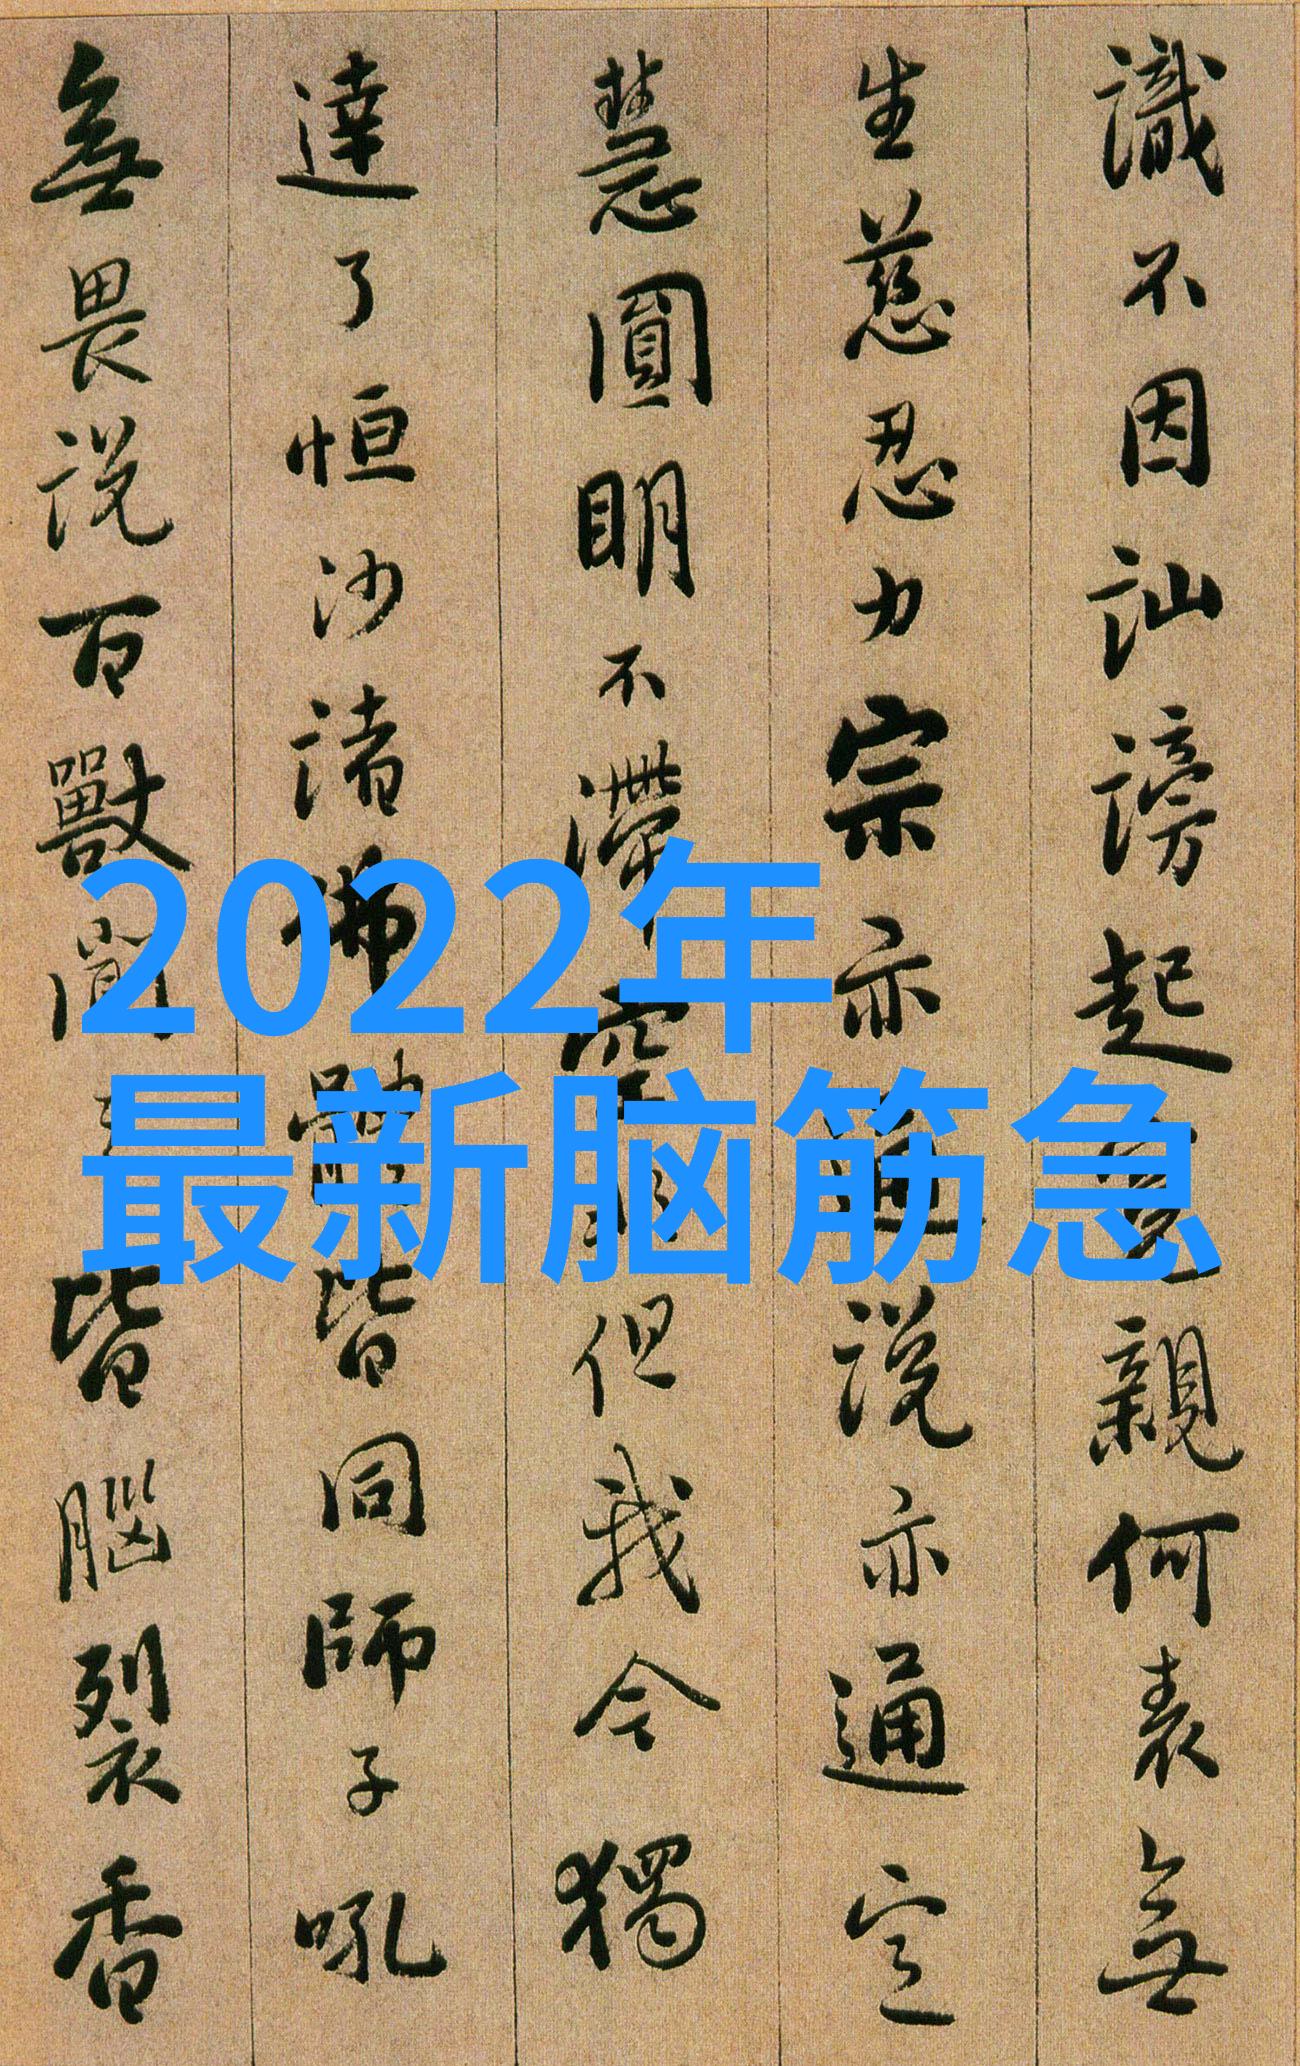 識不因訕謗起親何表無
生慈忍力宗亦通説亦通定
慧圓明不滯空但我今獨
達了恒沙諸佛體皆同師子吼
無畏説百獸聞皆腦裂香
2022年
最新脑筋急